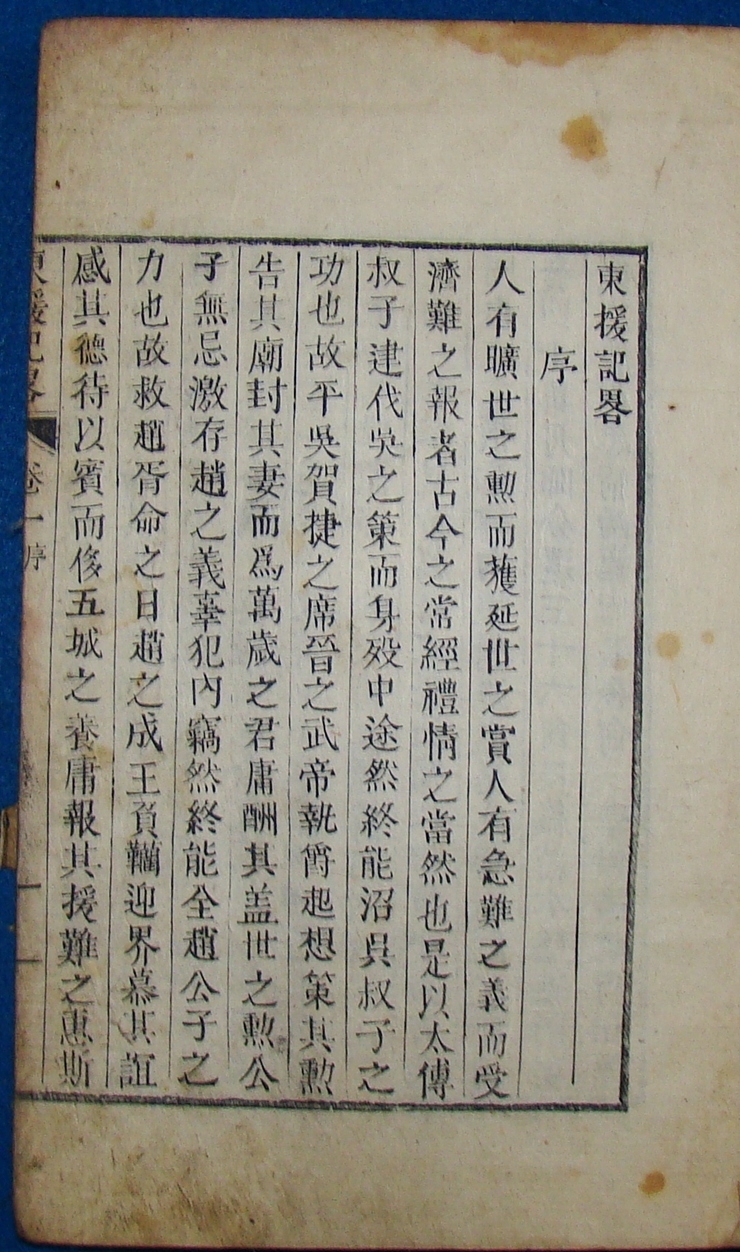 東援記畧
序
人有曠世之勲而獲延世之賞人有急難之義而受
濟難之報者古今之常經禮情之當然也是以太傅
叔子建伐吳之策而身殁中途然終能沼吳叔子之
功也故平吳賀捷之席晉之武帝執爵起想策其勲
告其廟封其妻而爲萬歲之君庸酬其盖世之勲公
子無忌激存趙之義辜犯內竊然終能全趙公子之
力也故救趙胥命之日趙之成王負韊迎界慕其誼
感其德待以賓而俊五城之養庸報其援難之惠斯
東援記畧 卷一 序